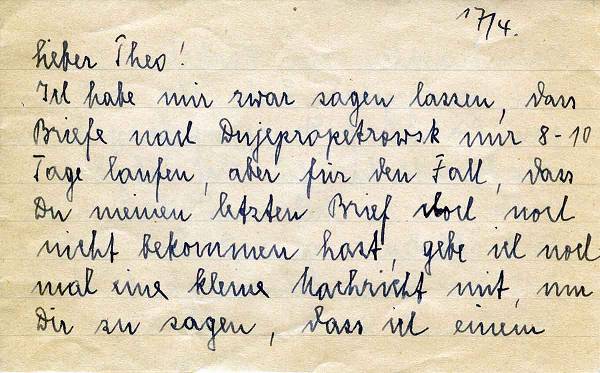 17/4.
Lieber Theo!
Ich habe mir zwar sagen lassen, dass
Briefe nach Dnjepropetrowsk nur 8-10
Tage laufen, aber für den Fall, dass
Du meinen letzten Brief doch noch
nicht bekommen hast, gebe ich noch
mal eine kleine Nachricht mit, um
Dir zu sagen, dass ich einem